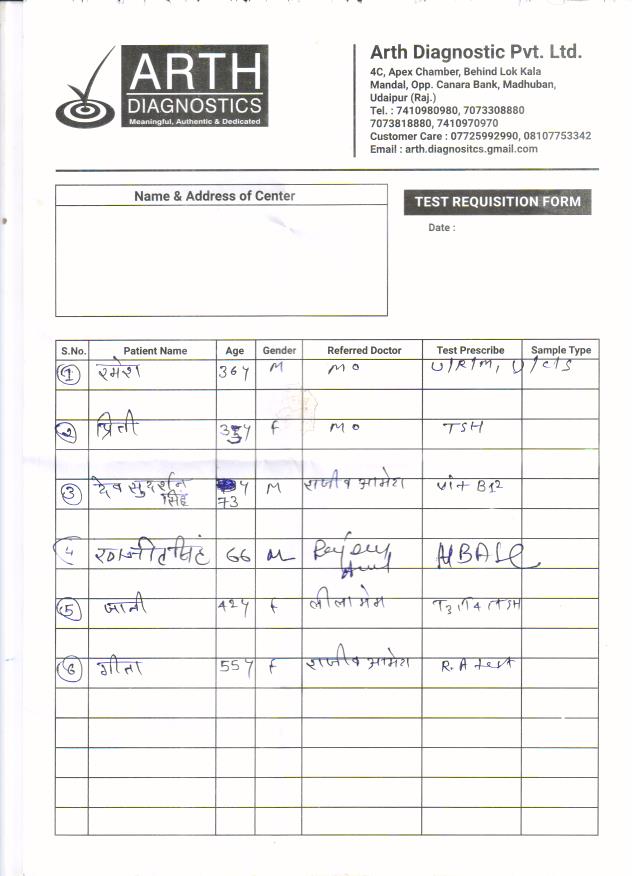 ARTH
DIAGNOSTICS
Meaningful, Authentic & Dedicated
Arth Diagnostic Pvt. Ltd.
4C, Apex Chamber, Behind Lok Kala
Mandal, Opp. Canara Bank, Madhuban,
Udaipur (Raj.)
Tel. : 7410980980, 7073308880
7073818880, 7410970970
Customer Care : 07725992990, 08107753342
Email : arth.diagnositcs.gmail.com
Name & Address of Center
TEST REQUISITION FORM
Date :
S.No. Patient Name Age Gender Referred Doctor Test Prescribe Sample Type
1 रमेश 36Y M MO U/R/M, U/C/S
2 प्रिती Y F MO TSH
3 देव सुदर्शन सिंह 73 Y M राजीव आमेटा Vit B12
4 रणजीत सिंह 66 M HBA1C
5 जानी 42Y F लीला मेम T3, T4, TSH
6 गीता 55Y F राजीव आमेटा R.A test